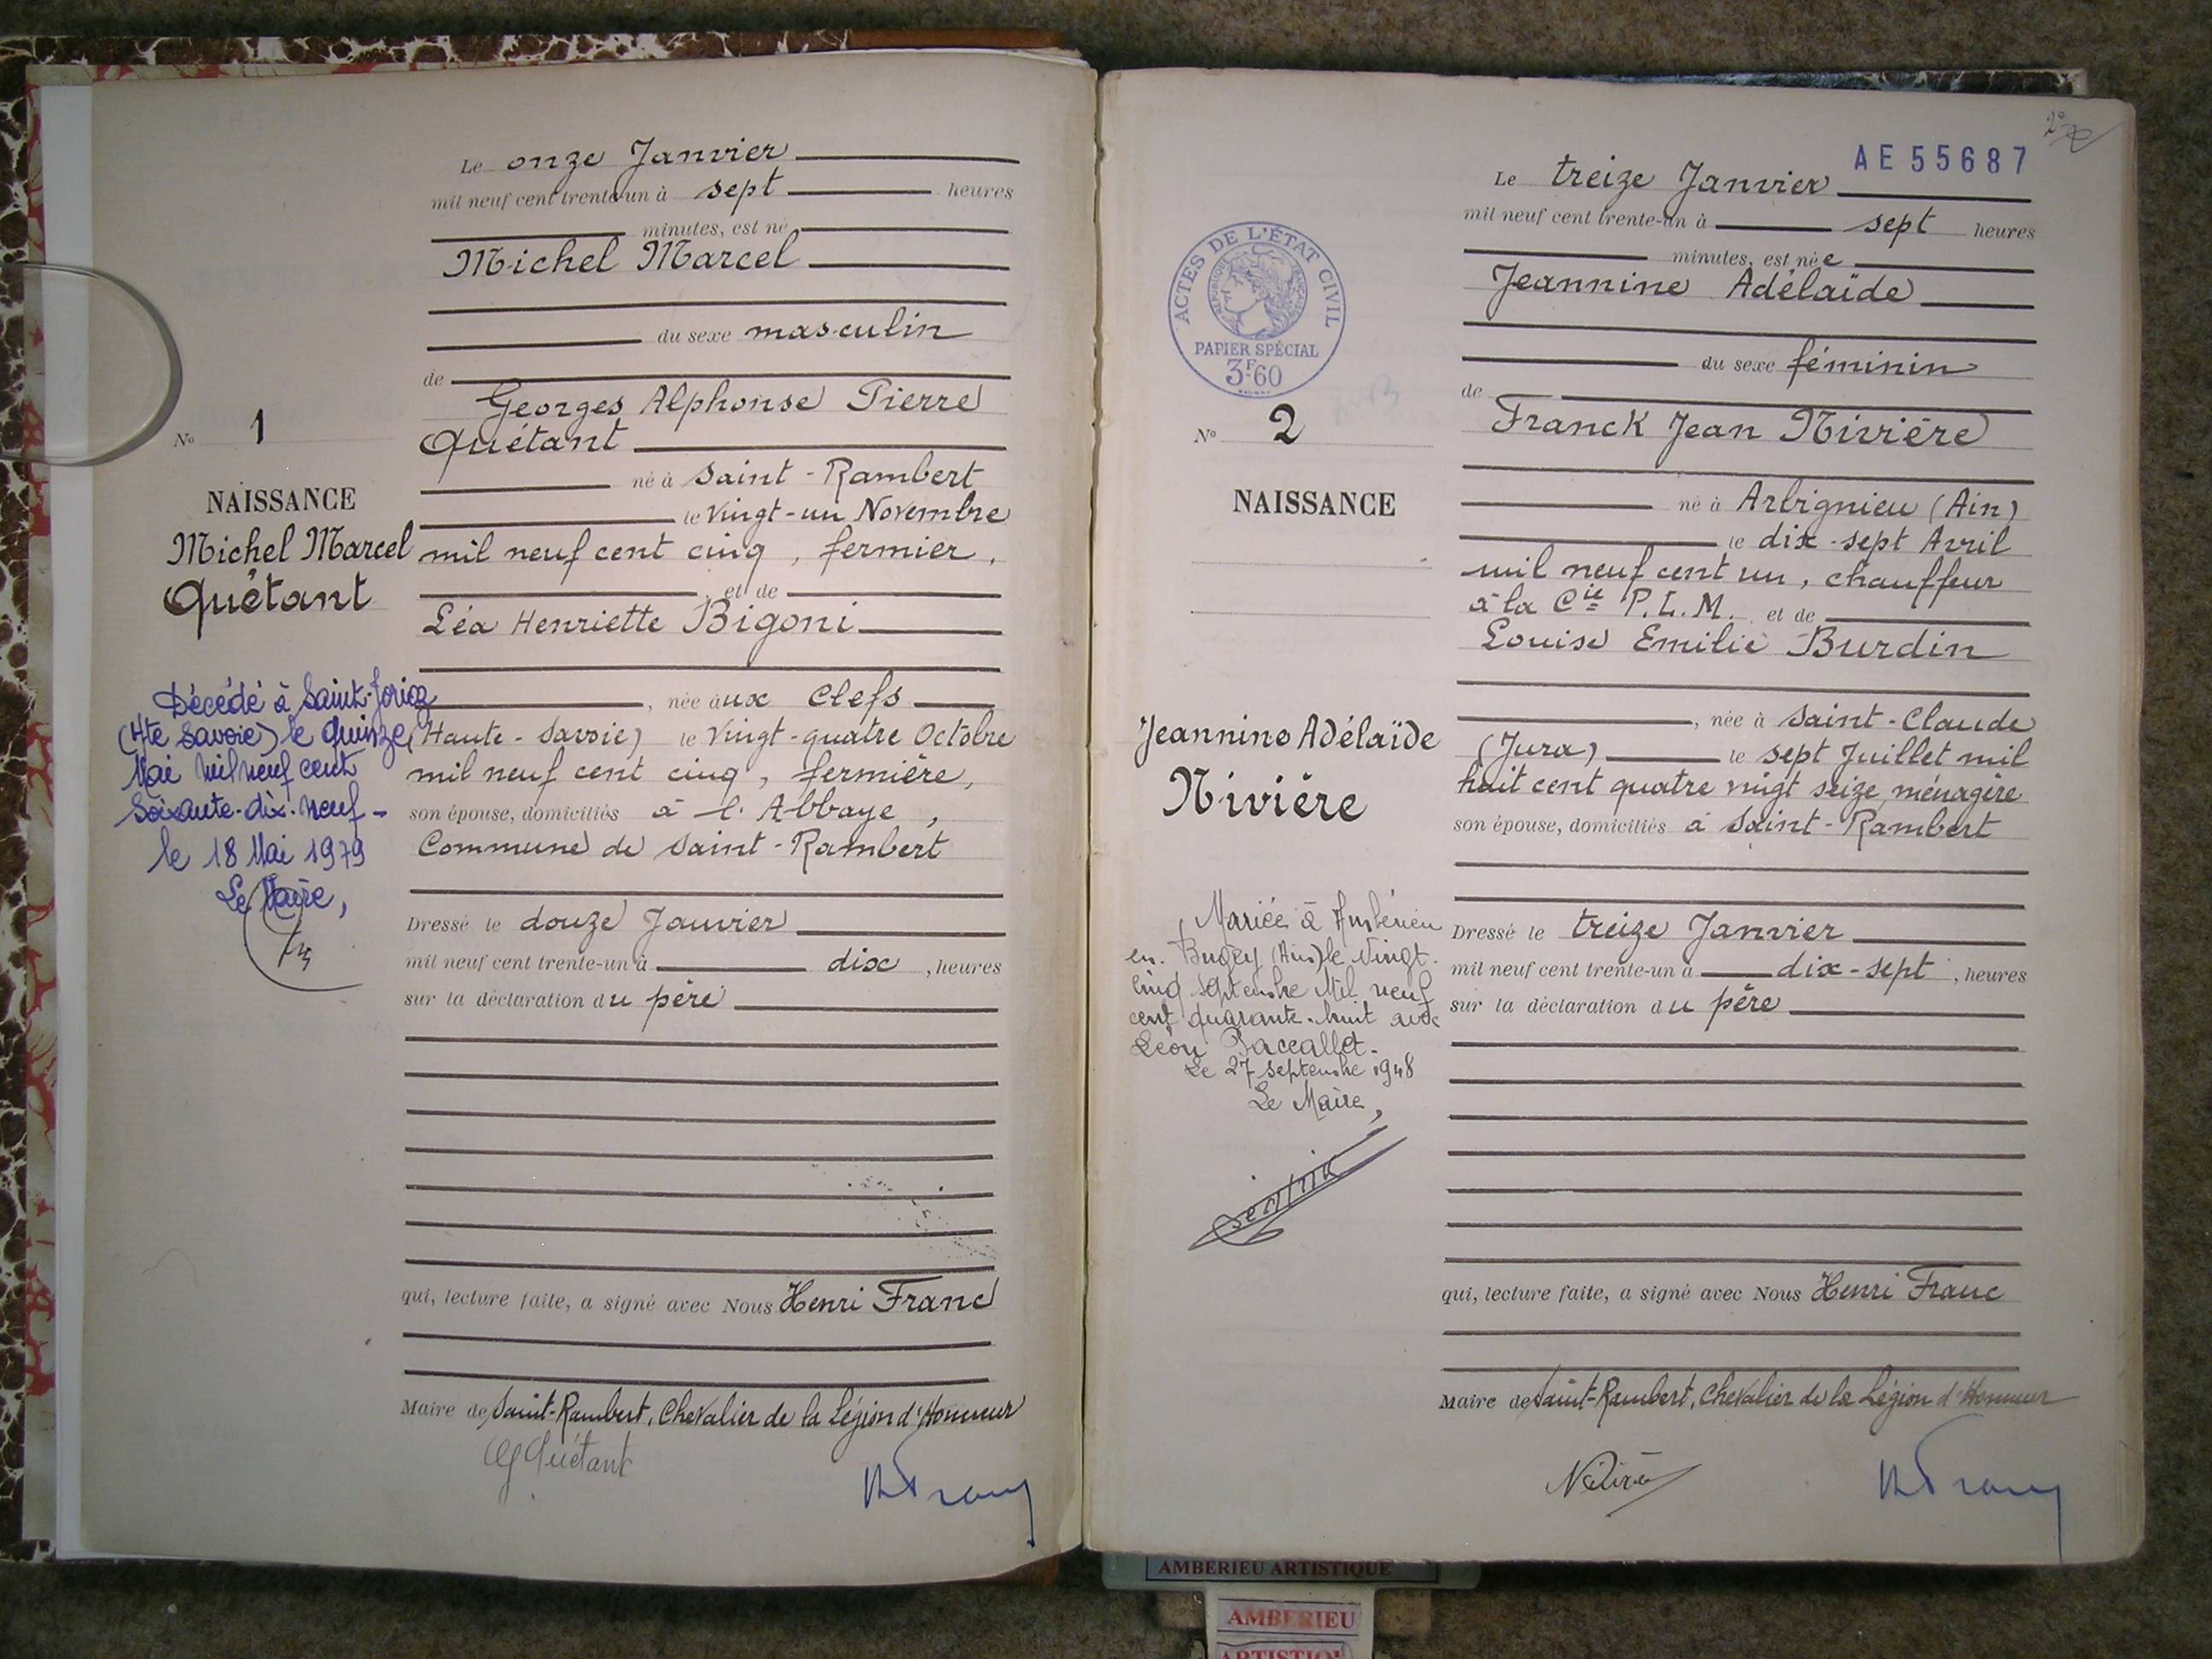 Le onze Janvier
mil neuf cent trente-un à sept heures
minutes, est né
Michel Marcel
du sexe masculin
de
Georges Alphonse Pierre
Quétant
né à Saint-Rambert
le Vingt-un Novembre
mil neuf cent cinq, fermier,
et de
Léa Henriette Bigoni
, née aux Clefs
(Haute-Savoie) le Vingt-quatre Octobre
mil neuf cent cinq, fermière,
son épouse, domiciliés à l'Abbaye,
Commune de Saint-Rambert
Dressé le douze Janvier
mil neuf cent trente-un à dix, heures
sur la déclaration du père
qui, lecture faite, a signé avec Nous Henri Franc
Maire de Saint-Rambert, Chevalier de la Légion d'Honneur
Quétant
No 1
NAISSANCE
Michel Marcel
Quétant
Décédé à Saint-Jorioz
(Hte Savoie) le quinze
Mai mil neuf cent
soixante-dix-neuf-
le 18 Mai 1979
Le Maire,
AE55687
Le treize Janvier
mil neuf cent trente-un à sept heures
minutes, est née
Jeannine Adélaïde
du sexe féminin
de
Franck Jean Nivière
né à Arbignieu (Ain)
le dix-sept Avril
mil neuf cent un, chauffeur
à la Cie P.L.M. et de
Louise Emilie Burdin
, née à Saint-Claude
(Jura) le sept Juillet mil
huit cent quatre vingt seize, ménagère
son épouse, domiciliés à Saint-Rambert
Dressé le treize Janvier
mil neuf cent trente-un à dix-sept, heures
sur la déclaration du père
qui, lecture faite, a signé avec Nous Henri Franc
Maire de Saint-Rambert, Chevalier de la Légion d'Honneur
ACTES DE L'ÉTAT CIVIL
RÉPUBLIQUE FRANÇAISE
PAPIER SPÉCIAL
3F60
No 2
NAISSANCE
Jeannine Adélaïde
Nivière
Mariée à Ambérieu
en Bugey (Ain) le Vingt-
cinq septembre Mil neuf
cent quarante-huit avec
Léon Paccallet.
Le 27 septembre 1948
Le Maire,
AMBERIEU ARTISTIQUE
AMBERIEU